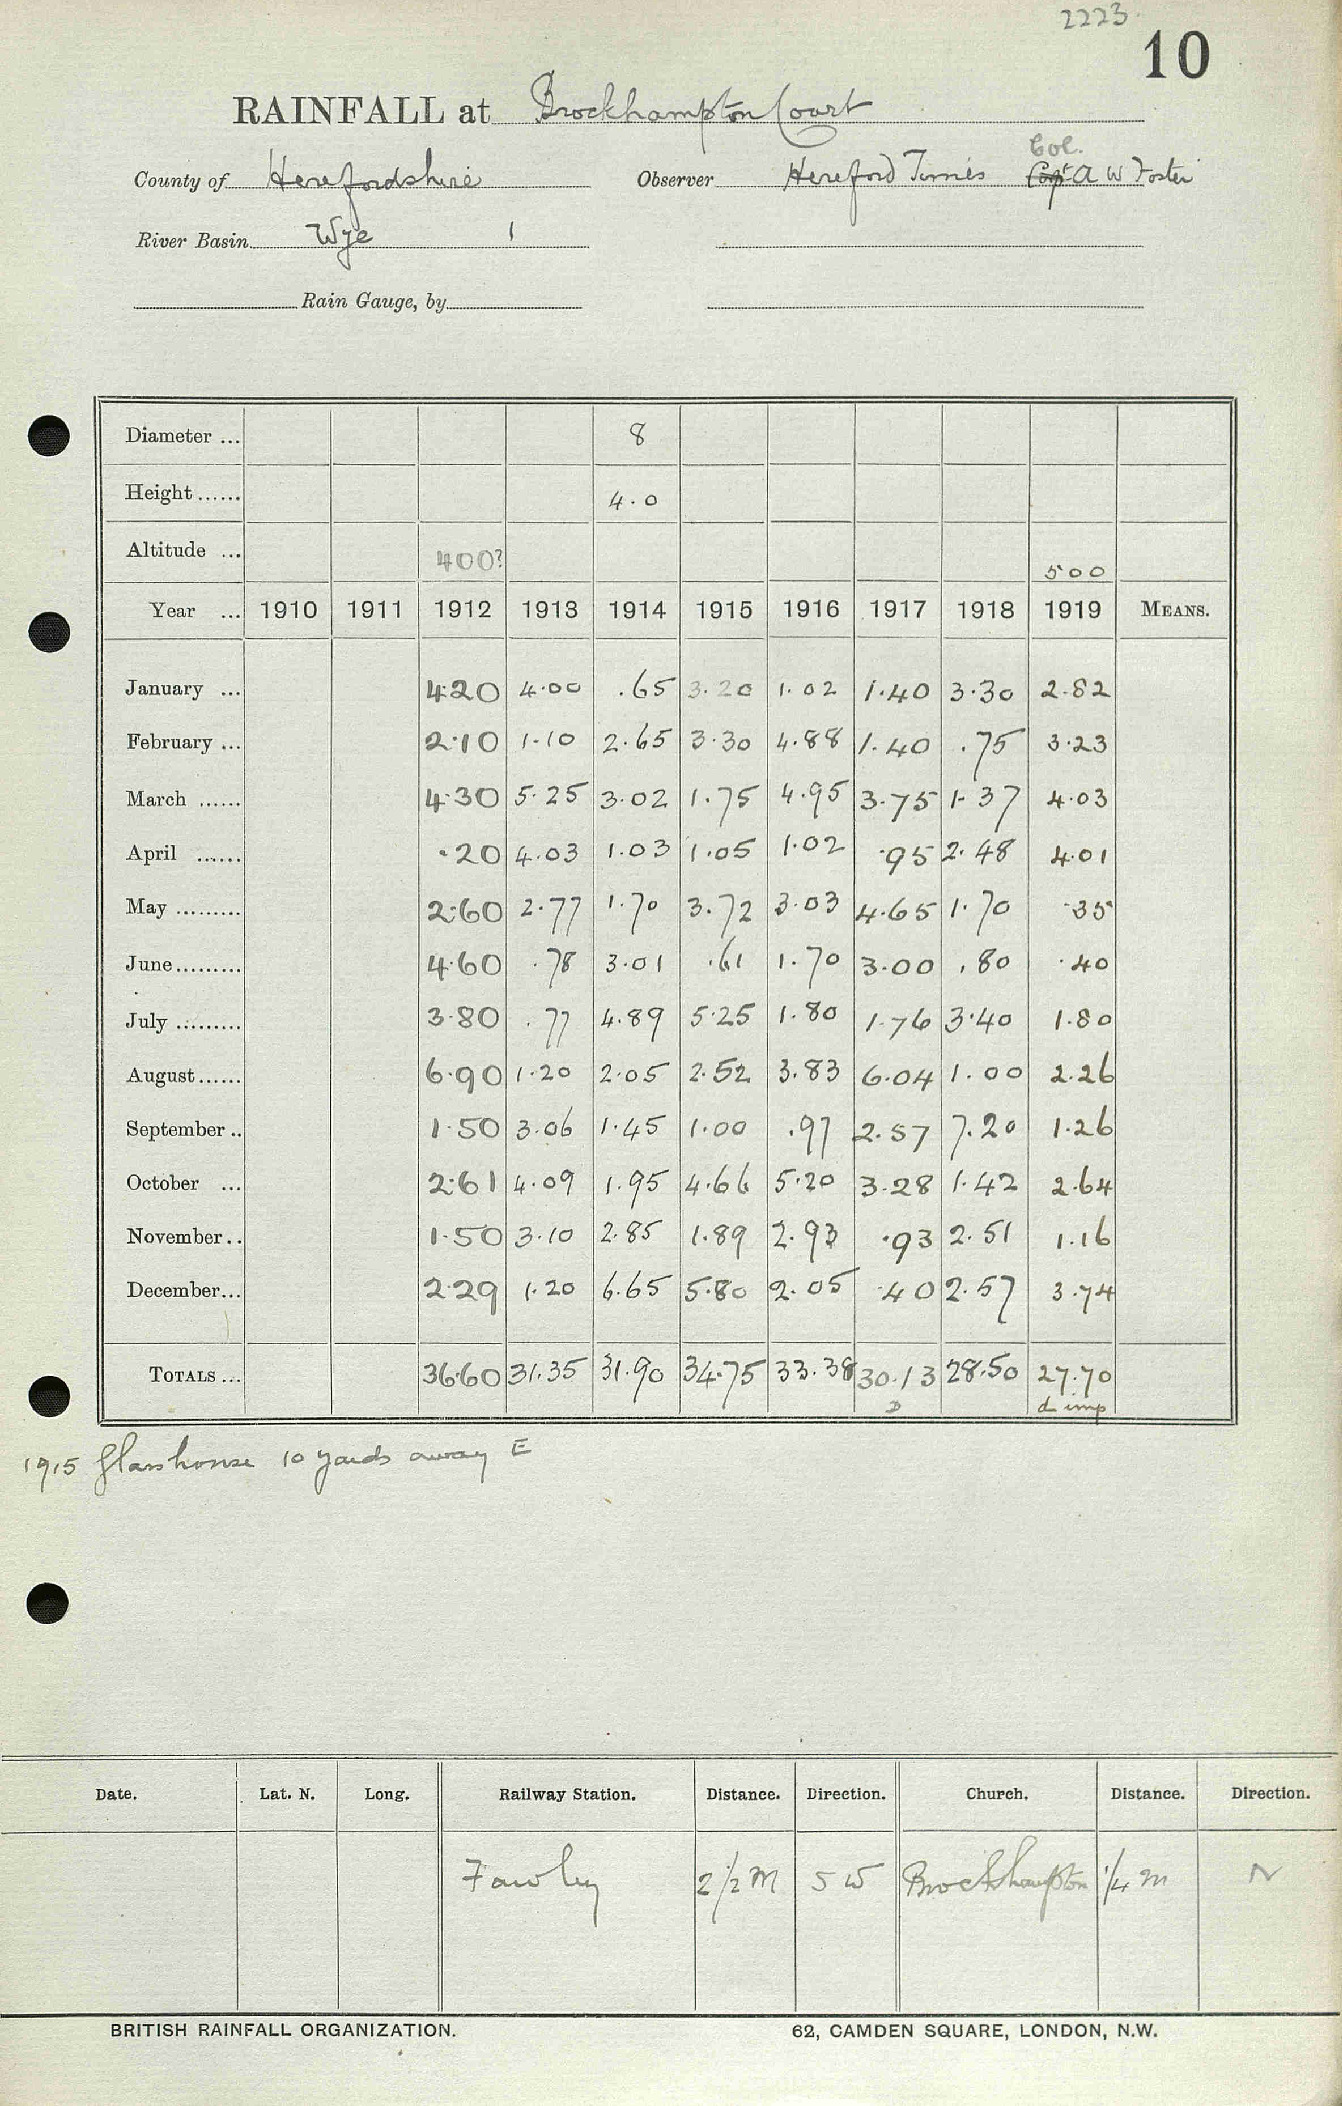 2223.
10
RAINFALL at Brockhampton Court
Col.
County of Herefordshire Observer Hereford Times Capt A W Foster
River Basin Wye 1
Rain Gauge, by
Diameter ... 8
Height ...... 4.0
Altitude ... 400? 500
Year ... 1910 1911 1912 1913 1914 1915 1916 1917 1918 1919 MEANS.
January ... 4.20 4.00 .65 3.20 1.02 1.40 3.30 2.82
February ... 2.10 1.10 2.65 3.30 4.88 1.40 .75 3.23
March ...... 4.30 5.25 3.02 1.75 4.95 3.75 1.37 4.03
April ...... .20 4.03 1.03 1.05 1.02 .95 2.48 4.01
May ......... 2.60 2.77 1.70 3.72 3.03 4.65 1.70 .35
June ......... 4.60 .78 3.01 .61 1.70 3.00 .80 .40
July ......... 3.80 .77 4.89 5.25 1.80 1.76 3.40 1.80
August ...... 6.90 1.20 2.05 2.52 3.83 6.04 1.00 2.26
September .. 1.50 3.06 1.45 1.00 .97 2.57 7.20 1.26
October ... 2.61 4.09 1.95 4.66 5.20 3.28 1.42 2.64
November .. 1.50 3.10 2.85 1.89 2.93 .93 2.51 1.16
December ... 2.29 1.20 6.65 5.80 2.05 .40 2.57 3.74
TOTALS ... 36.60 31.35 31.90 34.75 33.38 30.13 28.50 27.70
D d imp
1915 Glasshouse 10 yards away E
Date. Lat. N. Long. Railway Station. Distance. Direction. Church. Distance. Direction.
Fawley 2 1/2 M SW Brockhampton 1/4 m N
BRITISH RAINFALL ORGANIZATION. 62, CAMDEN SQUARE, LONDON, N.W.